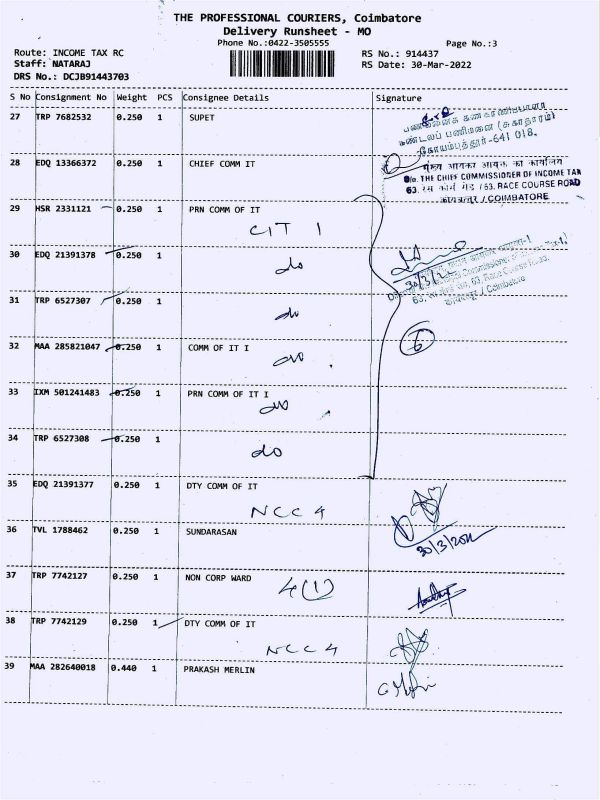 THE PROFESSIONAL COURIERS, Coimbatore
Delivery Runsheet - MO
Phone No.:0422-3505555
Page No.:3
Route: INCOME TAX RC
Staff: NATARAJ
DRS No.: DCJB91443703
RS No.: 914437
RS Date: 30-Mar-2022
S No Consignment No Weight PCS Consignee Details Signature
27 TRP 7682532 0.250 1 SUPET
கோயம்புத்தூர்-641 018.
28 EDQ 13366372 0.250 1 CHIEF COMM IT
मुख्य आयकर आयुक्त का कार्यालय
O/o. THE CHIEF COMMISSIONER OF INCOME TAX
63, रेस कोर्स रोड / 63, RACE COURSE ROAD
कोयम्बत्तूर / COIMBATORE
29 HSR 2331121 0.250 1 PRN COMM OF IT
CIT 1
30 EDQ 21391378 0.250 1
do
30/3/22
63, Race Course Road,
/ Coimbatore
31 TRP 6527307 0.250 1
do
32 MAA 285821047 0.250 1 COMM OF IT I
do
6
33 IXM 501241483 0.250 1 PRN COMM OF IT I
do
34 TRP 6527308 0.250 1
do
35 EDQ 21391377 0.250 1 DTY COMM OF IT
NCC 4
36 TVL 1788462 0.250 1 SUNDARASAN
30/3/2022
37 TRP 7742127 0.250 1 NON CORP WARD
4(1)
38 TRP 7742129 0.250 1 DTY COMM OF IT
NCC 4
39 MAA 282640018 0.440 1 PRAKASH MERLIN